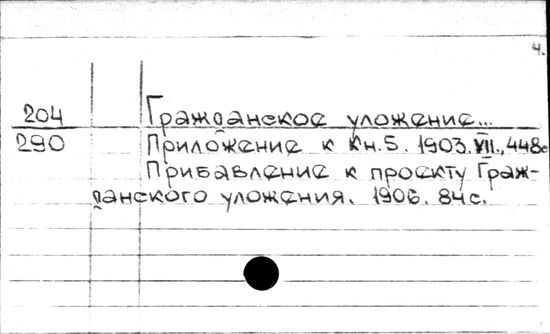 4.
204 Гражданское уложение...
290 Приложение к кн. 5. 1903. VII., 448с
Прибавление к проекту Граж-
данского уложения. 1906. 84 с.